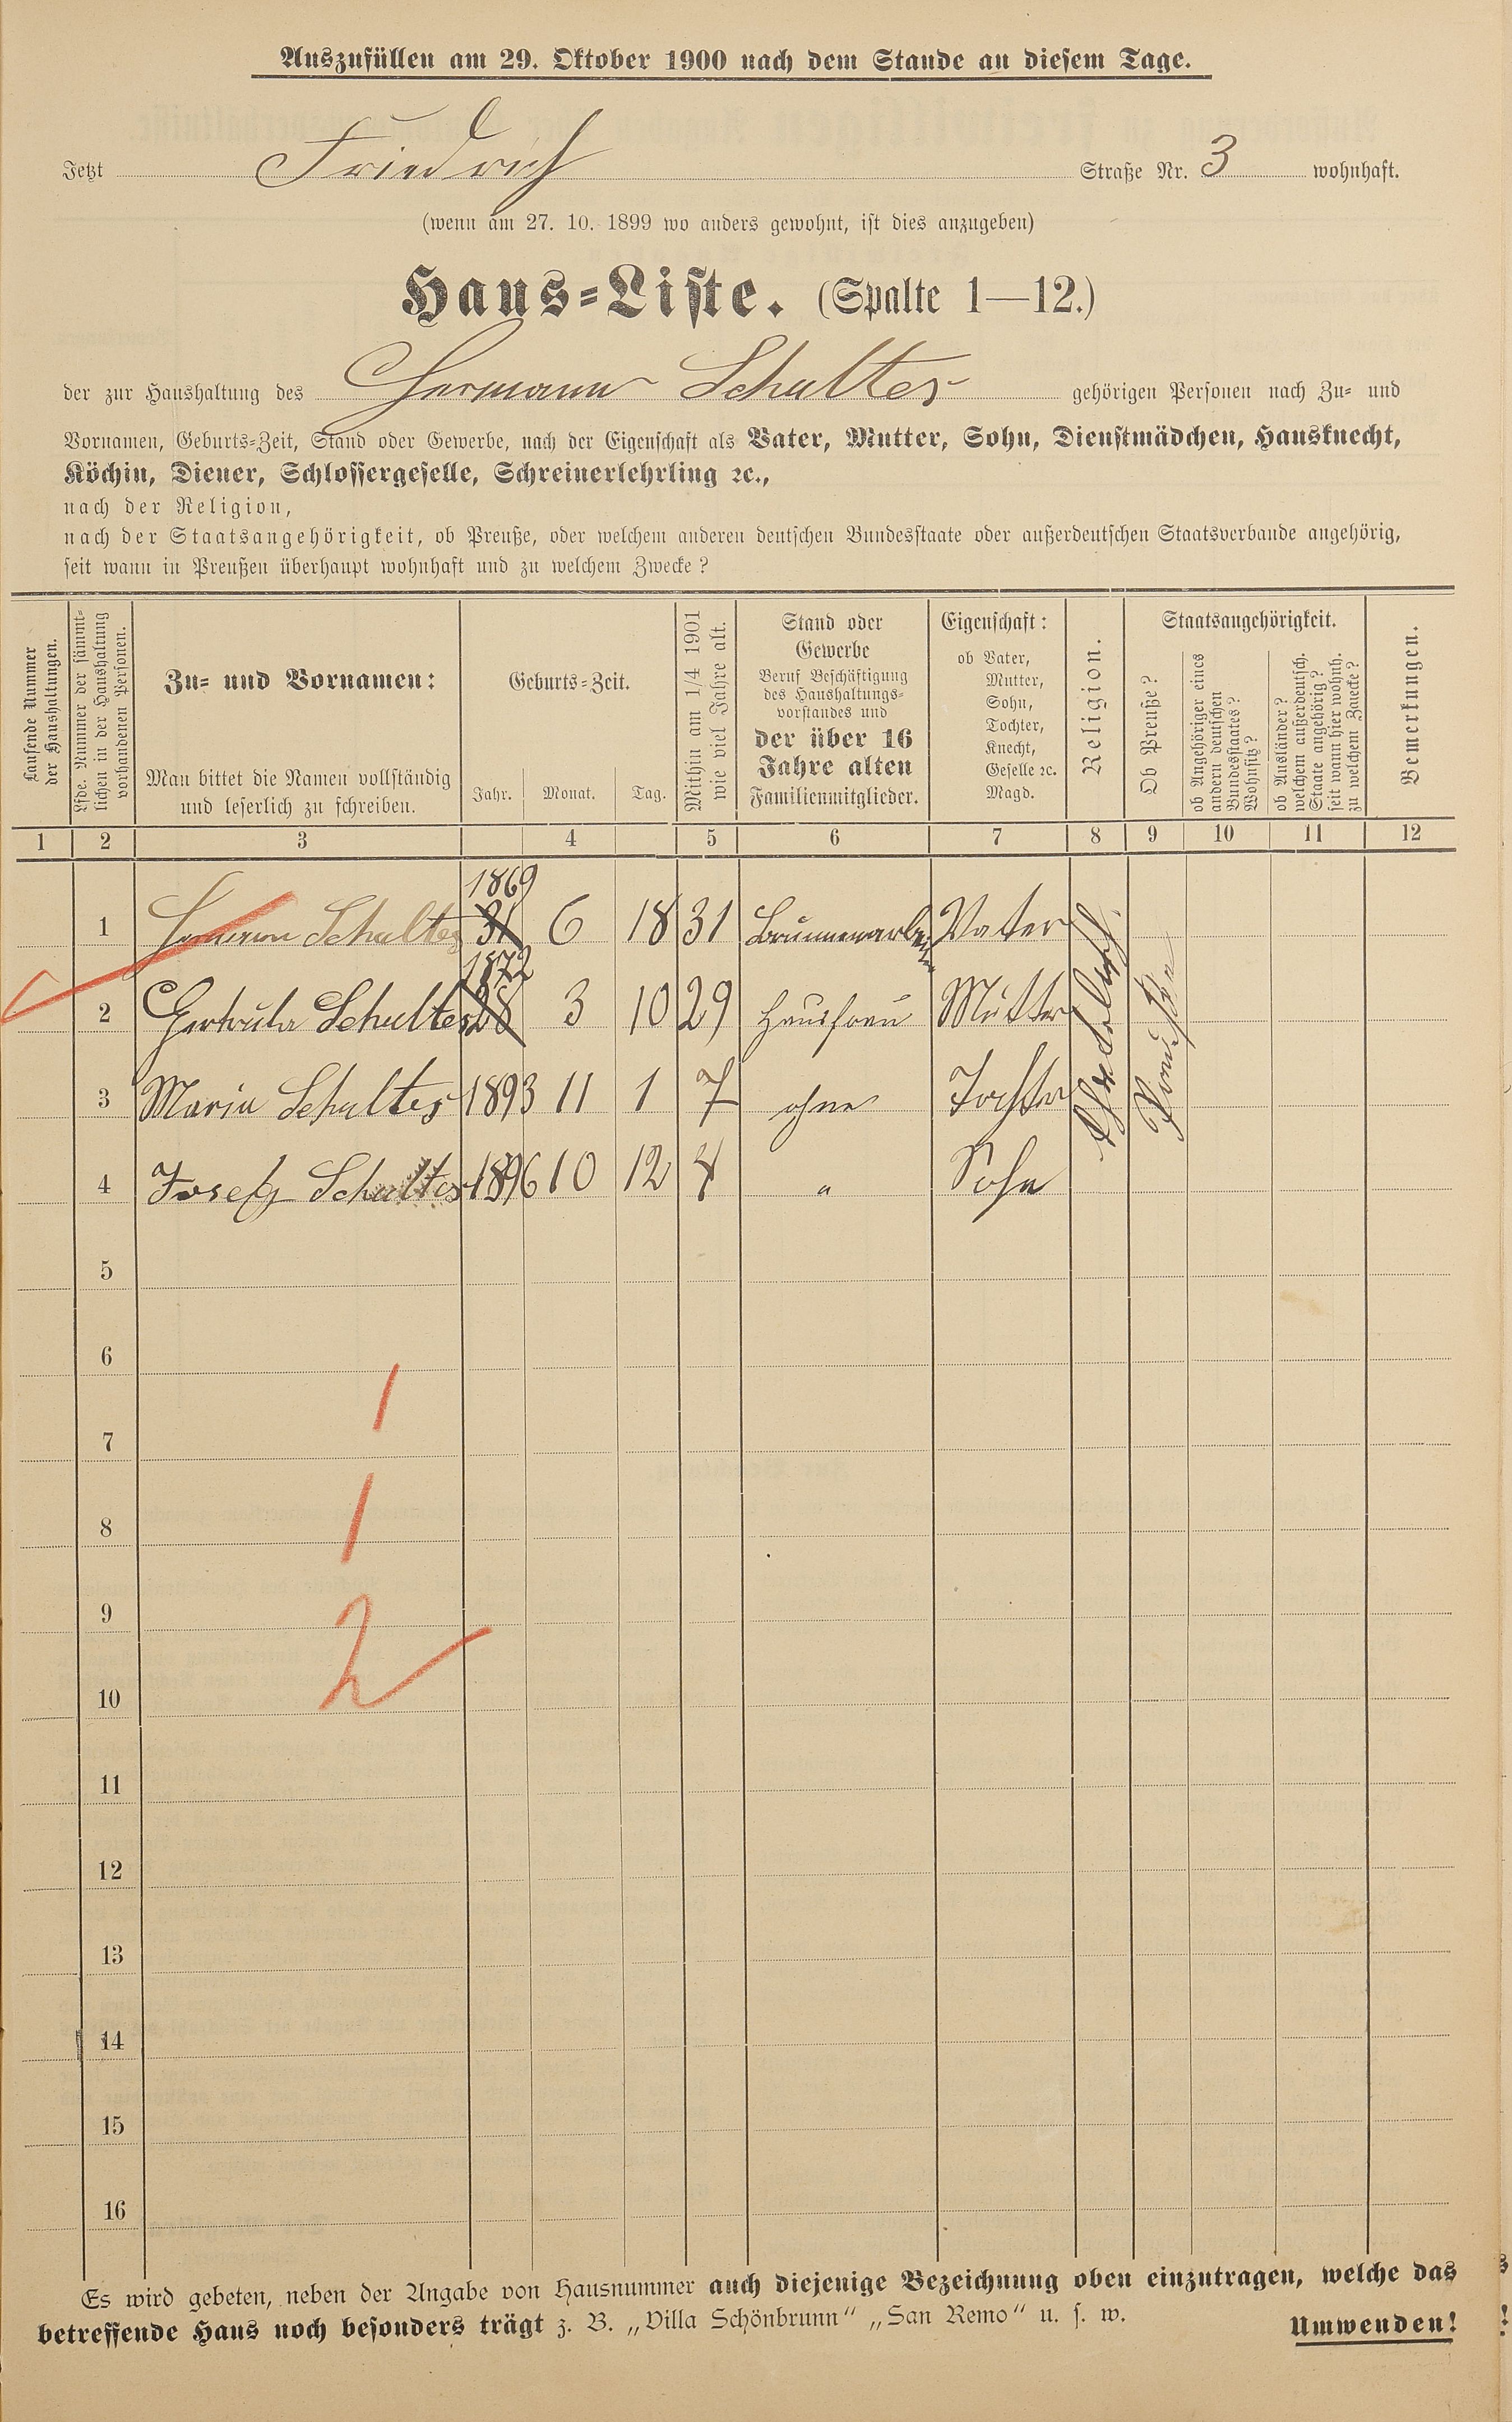 Auszufüllen am 29. Oktober 1900 nach dem Stande an diesem Tage.
Jetzt Friedrich Straße Nr. 3 wohnhaft.
(wenn am 27. 10. 1899 wo anders gewohnt, ist dies anzugeben)
Haus-Liste. (Spalte 1—12.)
der zur Haushaltung des Hermann Schultes gehörigen Personen nach Zu- und
Vornamen, Geburts-Zeit, Stand oder Gewerbe, nach der Eigenschaft als Vater, Mutter, Sohn, Dienstmädchen, Hausknecht,
Köchin, Diener, Schlossergeselle, Schreinerlehrling ꝛc.,
nach der Religion,
nach der Staatsangehörigkeit, ob Preuße, oder welchem anderen deutschen Bundesstaate oder außerdeutschen Staatsverbande angehörig,
seit wann in Preußen überhaupt wohnhaft und zu welchem Zwecke?
Laufende Nummer
der Haushaltungen.
Lfde. Nummer der sämmt-
lichen in der Haushaltung
vorhandenen Personen.
Zu- und Vornamen:
Man bittet die Namen vollständig
und leserlich zu schreiben.
Geburts-Zeit.
Jahr. Monat. Tag.
Mithin am 1/4 1901
wie viel Jahre alt.
Stand oder
Gewerbe
Beruf Beschäftigung
des Haushaltungs-
vorstandes und
der über 16
Jahre alten
Familienmitglieder.
Eigenschaft:
ob Vater,
Mutter,
Sohn,
Tochter,
Knecht,
Geselle ꝛc.
Magd.
Religion.
Staatsangehörigkeit.
Ob Preuße?
ob Angehöriger eines
andern deutschen
Bundesstaates?
Wohnsitz?
ob Ausländer?
welchem außerdeutsch.
Staate angehörig?
seit wann hier wohnh.
zu welchem Zwecke?
Bemerkungen.
1 2 3 4 5 6 7 8 9 10 11 12
1869
1 Hermann Schultes 31 6 18 31 Brunnenarbeiter Vater
1872
2 Gertruda Schultes 28 3 10 29 Hausfrau Mutter
3 Maria Schultes 1893 11 1 7 ohne Tochter
4 Josef Schultes 1896 10 12 4 " Sohn
Katholisch
Preußen
5
6
1
7
1
8
9
2
10
11
12
13
14
15
16
Es wird gebeten, neben der Angabe von Hausnummer auch diejenige Bezeichnung oben einzutragen, welche das
betreffende Haus noch besonders trägt z. B. „Villa Schönbrunn“ „San Remo“ u. s. w.
Umwenden!